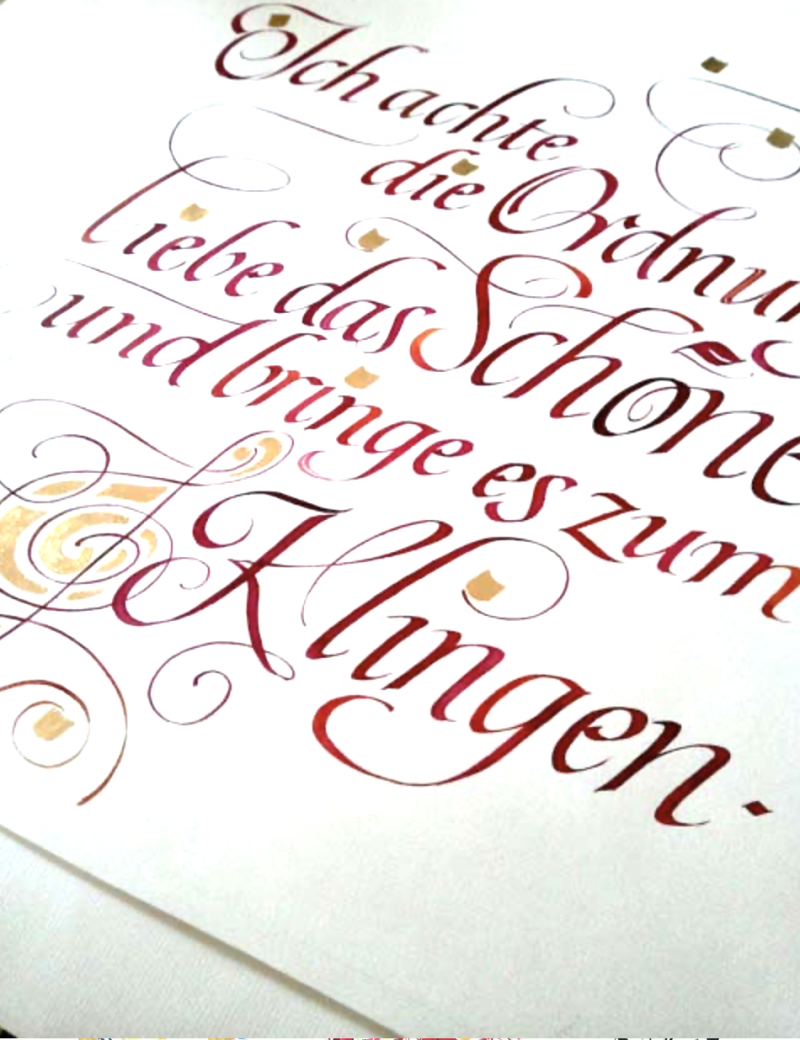 Ich achte
die Ordnun
liebe das Schone
und bringe es zum
Klingen.